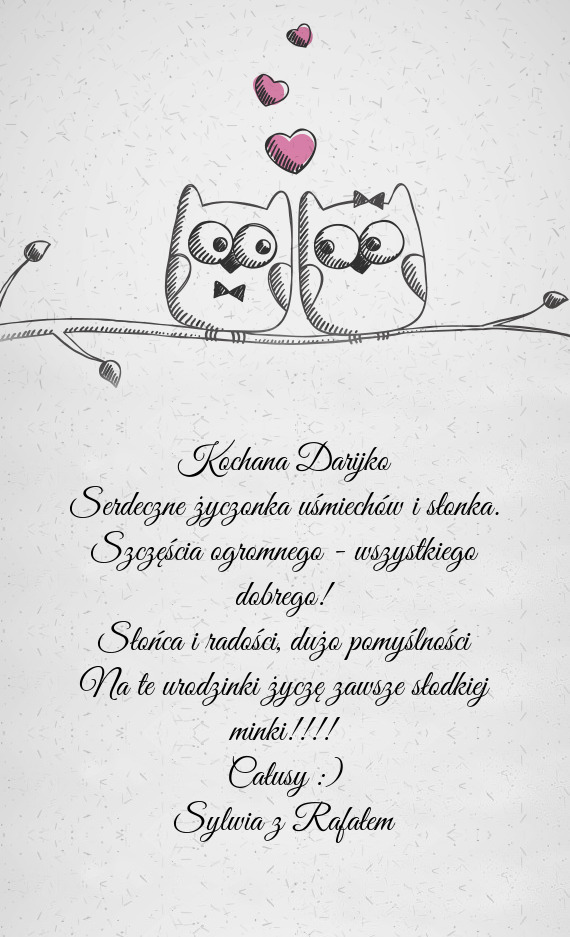 Kochana Darijko
Serdeczne życzonka uśmiechów i słonka.
Szczęścia ogromnego - wszystkiego
dobrego!
Słońca i radości, dużo pomyślności
Na te urodzinki życzę zawsze słodkiej
minki!!!!
Całusy :)
Sylwia z Rafałem